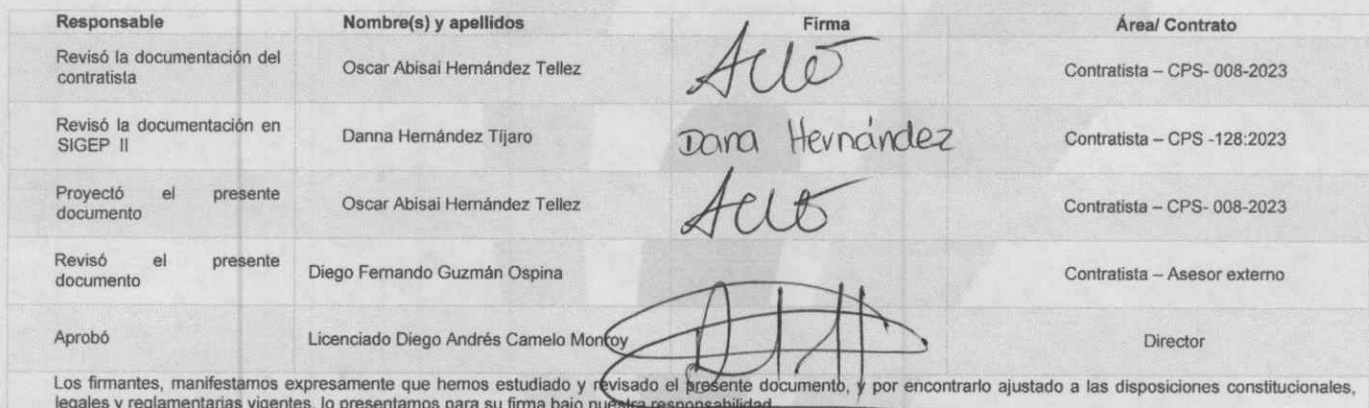 Responsable Nombre(s) y apellidos Firma Área/ Contrato
Revisó la documentación del
contratista
Oscar Abisai Hernández Tellez
Contratista – CPS- 008-2023
Revisó la documentación en
SIGEP II
Danna Hernández Tíjaro
Dana Hernández
Contratista – CPS -128:2023
Proyectó el presente
documento
Oscar Abisai Hernández Tellez
Contratista – CPS- 008-2023
Revisó el presente
documento
Diego Fernando Guzmán Ospina
Contratista – Asesor externo
Aprobó
Licenciado Diego Andrés Camelo Montoy
Director
Los firmantes, manifestamos expresamente que hemos estudiado y revisado el presente documento, y por encontrarlo ajustado a las disposiciones constitucionales,
legales y reglamentarias vigentes, lo presentamos para su firma bajo nuestra responsabilidad